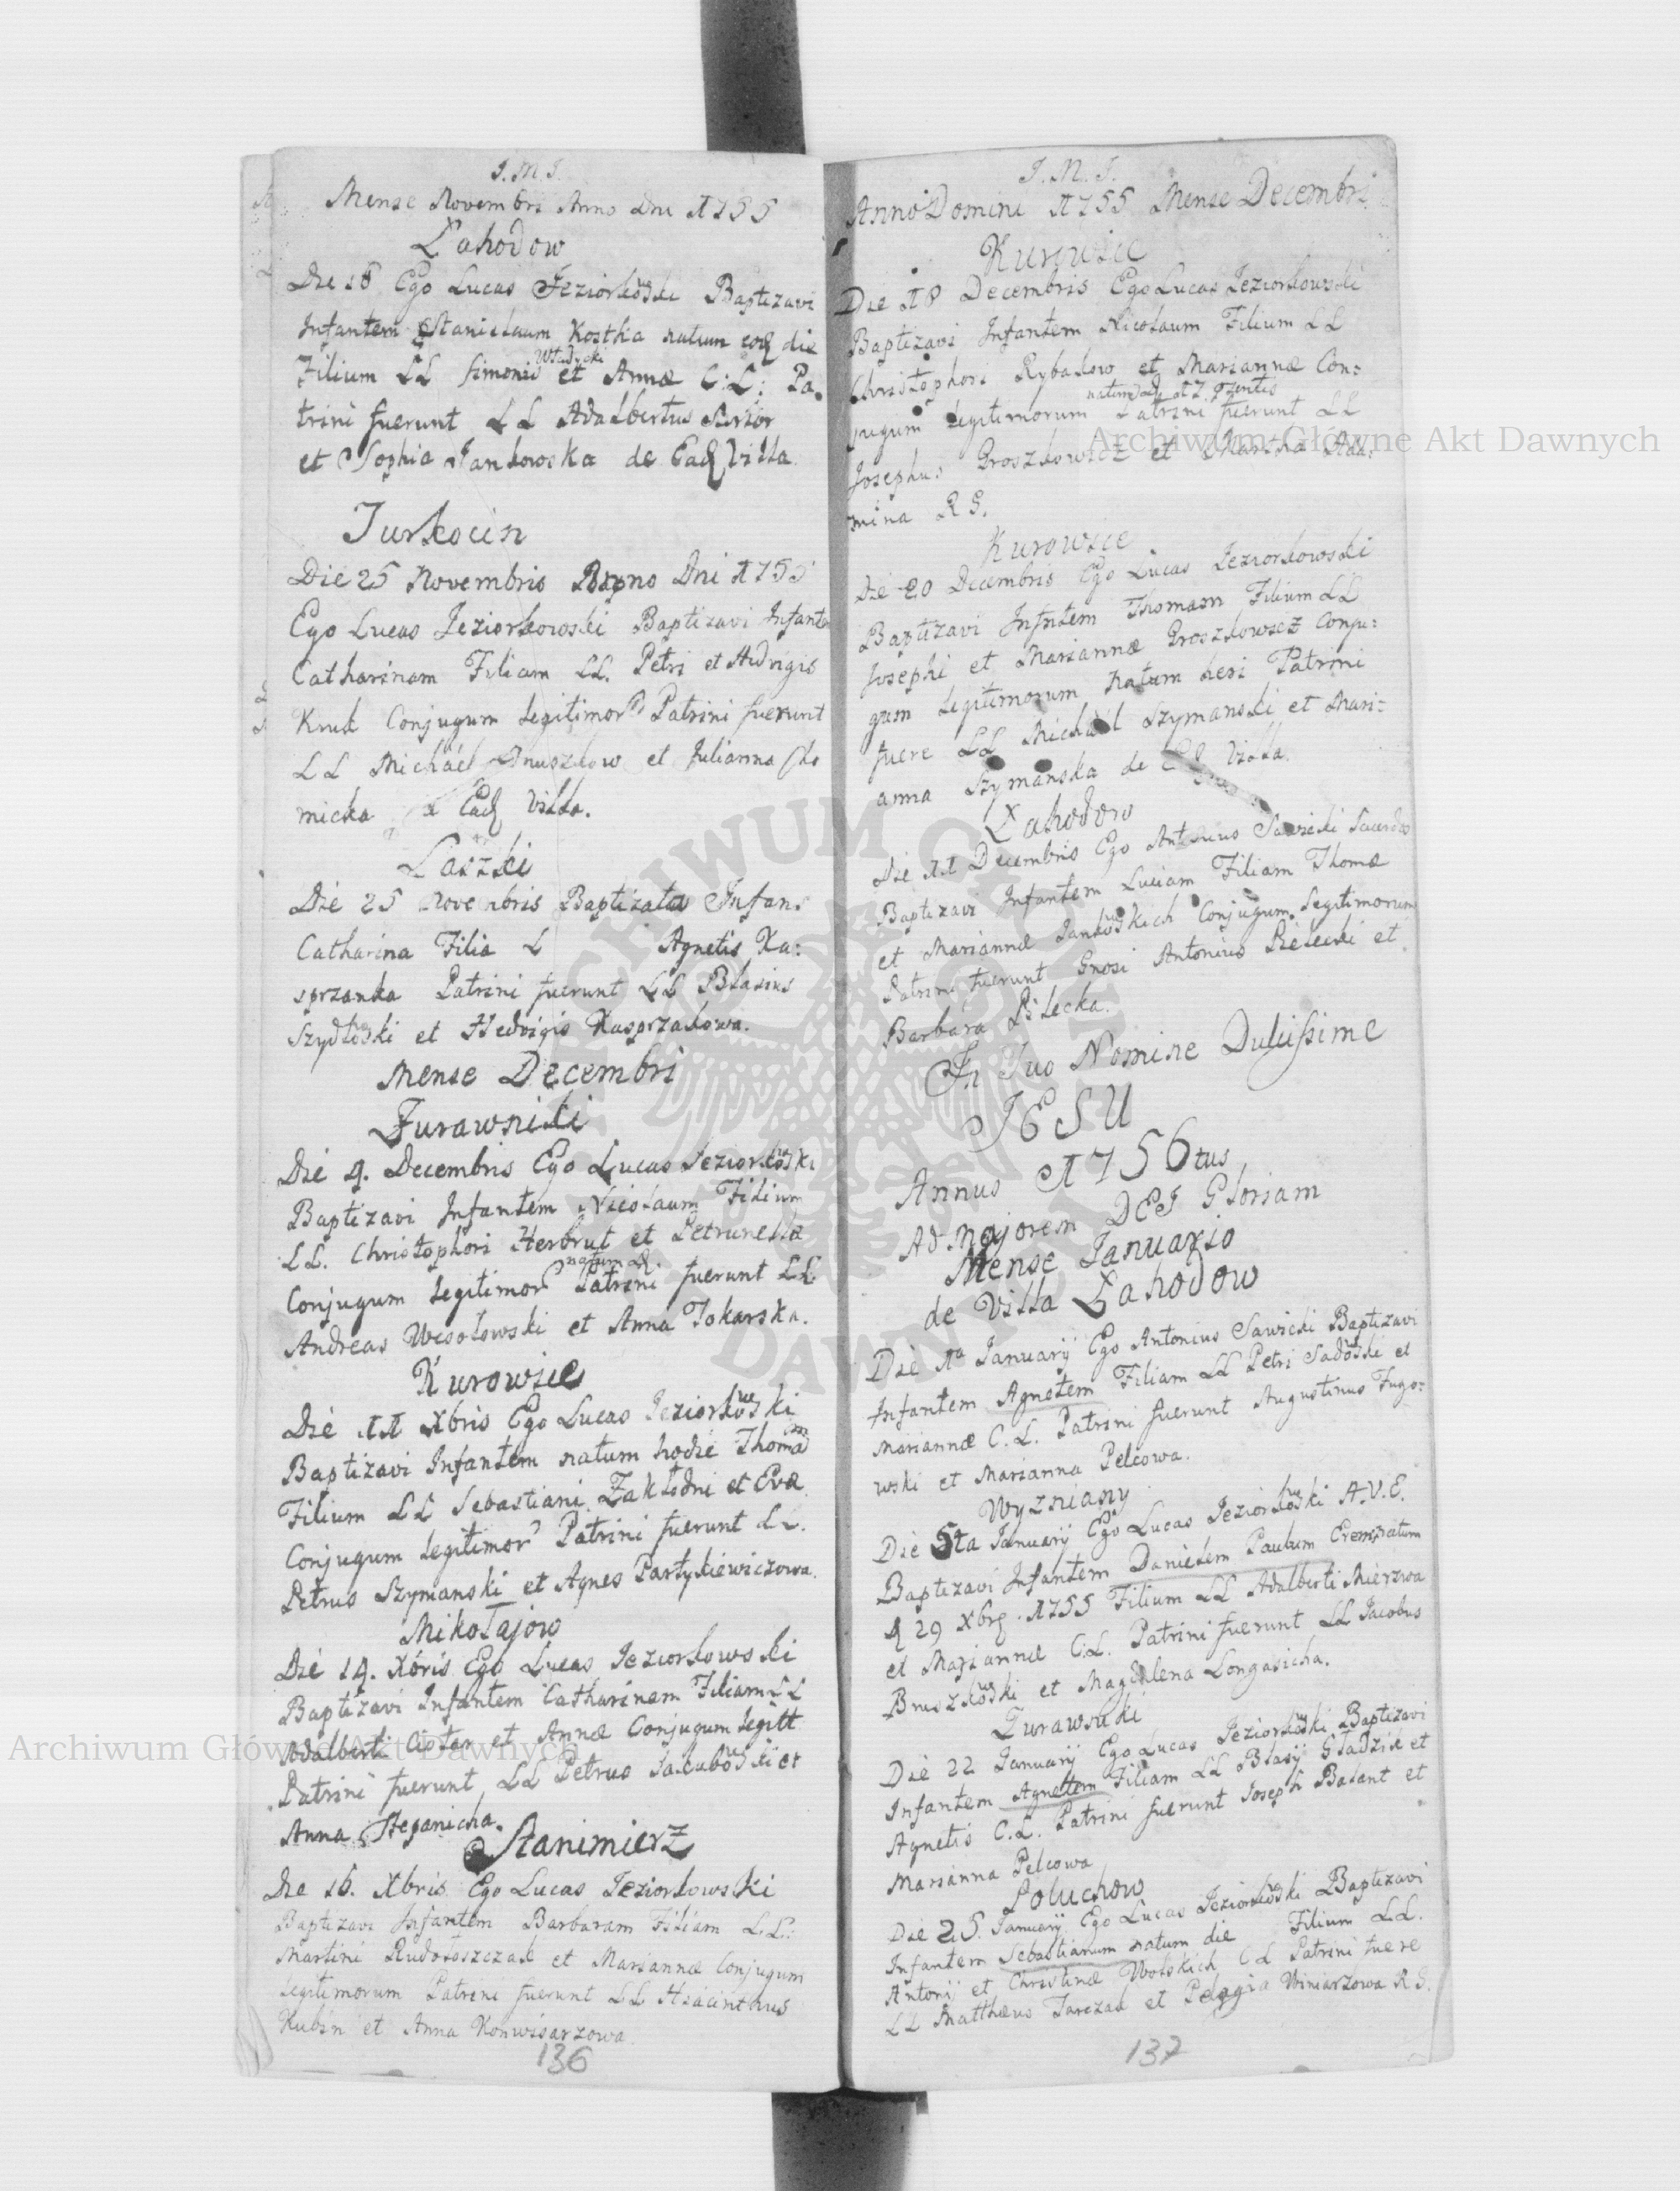 J. M. J.
Mense Novembri Anno Dni 1755
Lahodow
Die 18 Ego Lucas Jeziorkowski Baptizavi
Infantem Stanislaum Kostka natum eod die
Filium LL Simonis Władycki et Annæ C: L: Pa
trini fuerunt LL Adalbertus
et Sophia Jankowska de Ead Villa
Turkocin
Die 25 Novembris Anno Dni 1755
Ego Lucas Jeziorkowski Baptizavi Infante
Catharinam Filiam LL. Petri et Hedvigis
Kruk Conjugum legitimor Patrini fuerunt
LL Michael et Julianna Sło
micka Ead Villa.
Laszki
Die 25 Novembris Baptizata Infans
Catharina Filia L Agnetis Ka:
sprzanka Patrini fuerunt LL Blasius
Szydłowski et Hedvigis Kasprzakowa.
Mense Decembri
Żurawniki
Die 4. Decembris Ego Lucas Jeziorkowski
Baptizavi Infantem Nicolaum Filium
LL. Christophori Herbrut et Petrunellæ
Conjugum legitimor natum Patrini fuerunt LL
Andreas Wesołowski et Anna Tokarska.
Kurowice
Die 11 Xbris Ego Lucas Jeziorkowski
Baptizavi Infantem natum hodie Thomam
Filium LL Sebastiani Zakłodni et Evæ
Conjugum legitimor Patrini fuerunt LL.
Petrus Szymanski et Agnes Partykiewiczowa.
Mikołajow
Die 14. Xbris Ego Lucas Jeziorkowski
Baptizavi Infantem Catharinam Filiam LL
Adalberti et Annæ Conjugum legitt
Patrini fuerunt LL Petrus Jakubowski et
Anna Stepanicha.
Stanimierz
Die 16. Xbris Ego Lucas Jeziorkowski
Baptizavi Infantem Barbaram Filiam L.L.
Martini Rudołoszczak et Mariannæ Conjugum
legitimorum Patrini fuerunt LL Hiacinthus
Kubin et Anna Konwisarzowa
136
J. M. J.
Anno Domini 1755 Mense Decembri
Kurowice
Die 18 Decembris Ego Lucas Jeziorkowski
Baptizavi Infantem Nicolaum Filium LL
Christophori Rybakow et Mariannæ Con:
jugum legitimorum natum Patrini fuerunt LL
Josephus Groszkowicz et Martha Ada:
mina R S.
Kurowice
Die 20 Decembris Ego Lucas Jeziorkowski
Baptizavi Infntem Thomam Filium LL
Josephi et Mariannæ Groszkowicz Conju:
gum legitimorum natum heri Patrini
fuere LL Michael Szymanski et Mari:
anna Szymanska de Villa.
Lahodow
Die 11 Decembris Ego Antonius Sawicki
Baptizavi Infantem Luciam Filiam Thomæ
et Mariannæ Jankowskich Conjugum legitimorum
Patrini fuerunt Gnosi Antonius Pilecki et
Barbara Pilecka.
In Tuo Nomine Dulcissime
JESU
Annus 1756tus
Ad Majorem DEI Gloriam
Mense Januario
de Villa Lahodow
Die 1a Januarij Ego Antonius Sawicki Baptizavi
Infantem Agnetem Filiam LL Petri Sadowski et
Mariannæ C. L. Patrini fuerunt Augustinus Fugo:
wski et Marianna Pelcowa.
Wyzniany
Die 5ta Januarij Ego Lucas Jeziorkowski A.V.E.
Baptizavi Infantem Danielem Paulum Erem: natum
d 29 Xbr 1755 Filium LL Adalberti Mierzwa
et Mariannæ C.L. Patrini fuerunt LL Jacobus
Bruszkowski et Magdalena Longasicha.
Żurawniki
Die 22 Januarij Ego Lucas Jeziorkowski Baptizavi
Infantem Agnetem Filiam LL Blasij Gładzik et
Agnetis C.L. Patrini fuerunt Joseph Balant et
Marianna Pelcowa
Poluchow
Die 25. Januarij Ego Lucas Jeziorkowski Baptizavi
Infantem Sebastianum natum die Filium LL.
Antonij et Christinæ Wolskich CL Patrini fuere
LL Matthæus Jarczak et Pelagia Winiarzowa R S.
137
Archiwum Główne Akt Dawnych
Archiwum Główne Akt Dawnych
ARCHIWUM GŁÓWNE AKT DAWNYCH